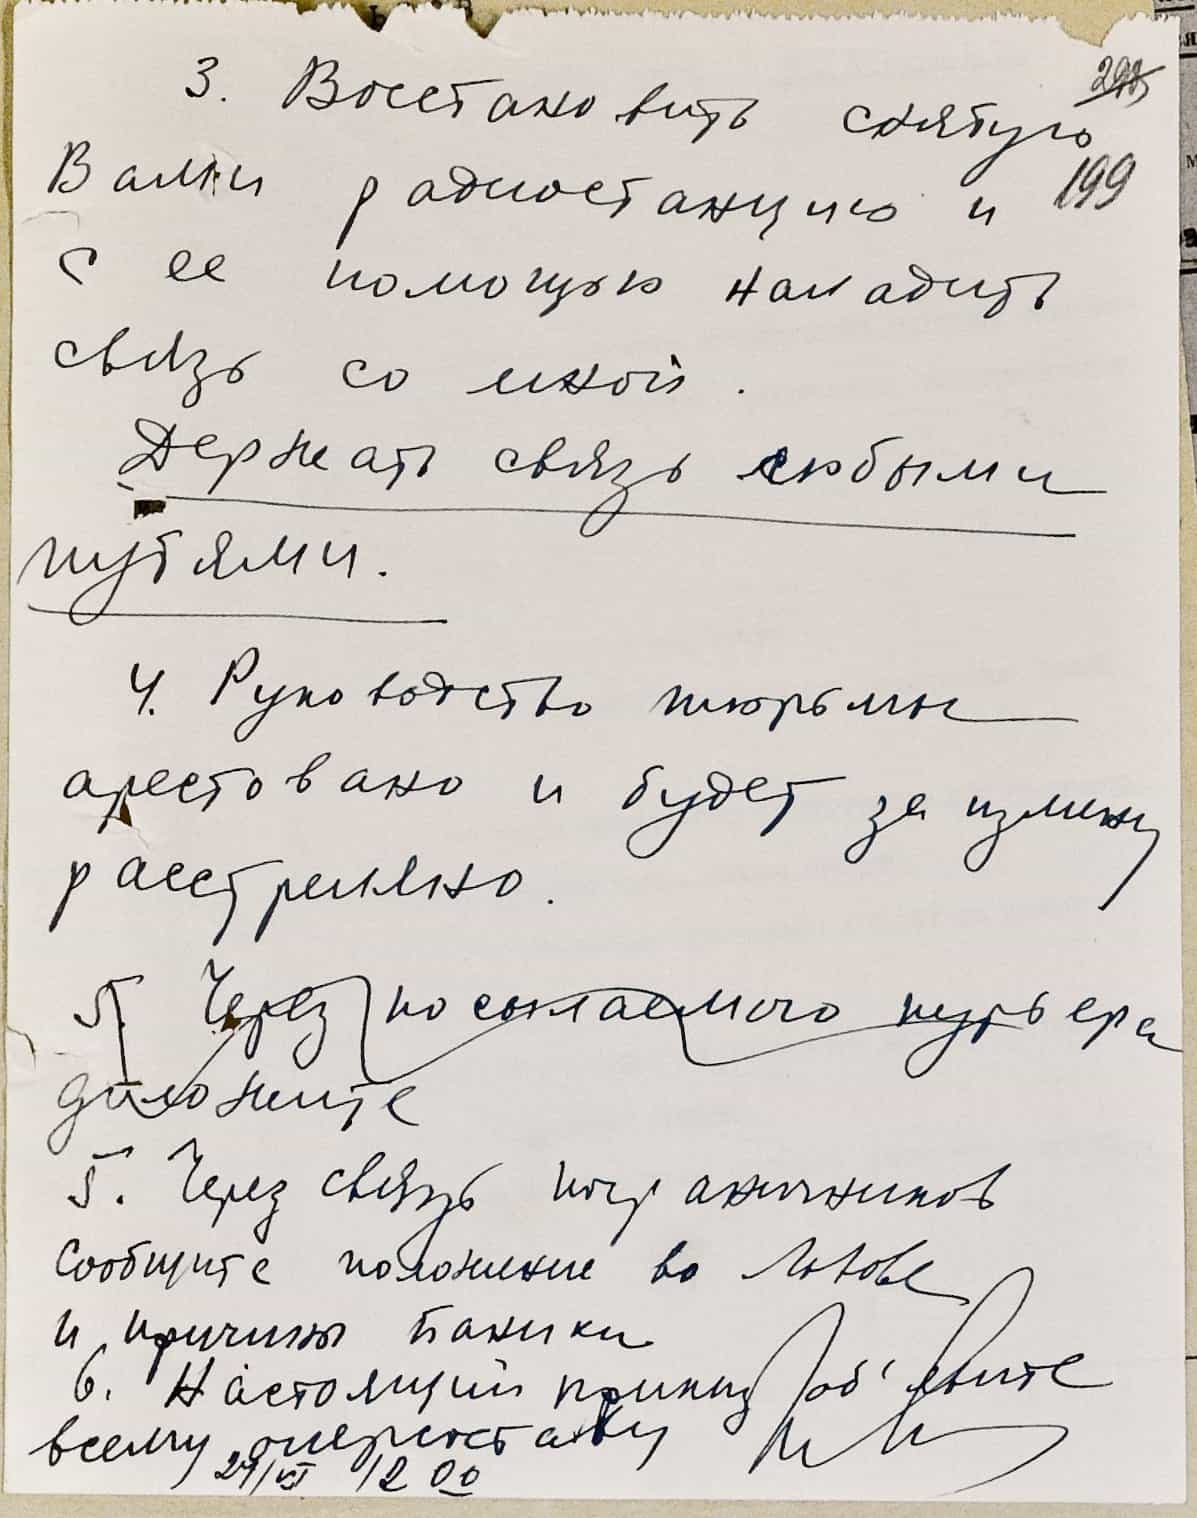 3. Восстановить снятую
Вами радиостанцию и
с ее помощью наладить
связь со мной.
Держать связь любыми
путями.
4. Руководство тюрьмы
арестовано и будет за измену
расстреляно.
5. Через посылаемого курьера
доложите
5. Через связь пограничников
сообщите положение во Львове
и причины паники
6. Настоящий приказ об'явите
всему оперсоставу
24/VI 12 00
199